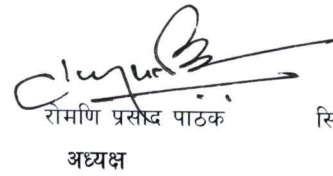 रोमणि प्रसाद पाठक सि
अध्यक्ष